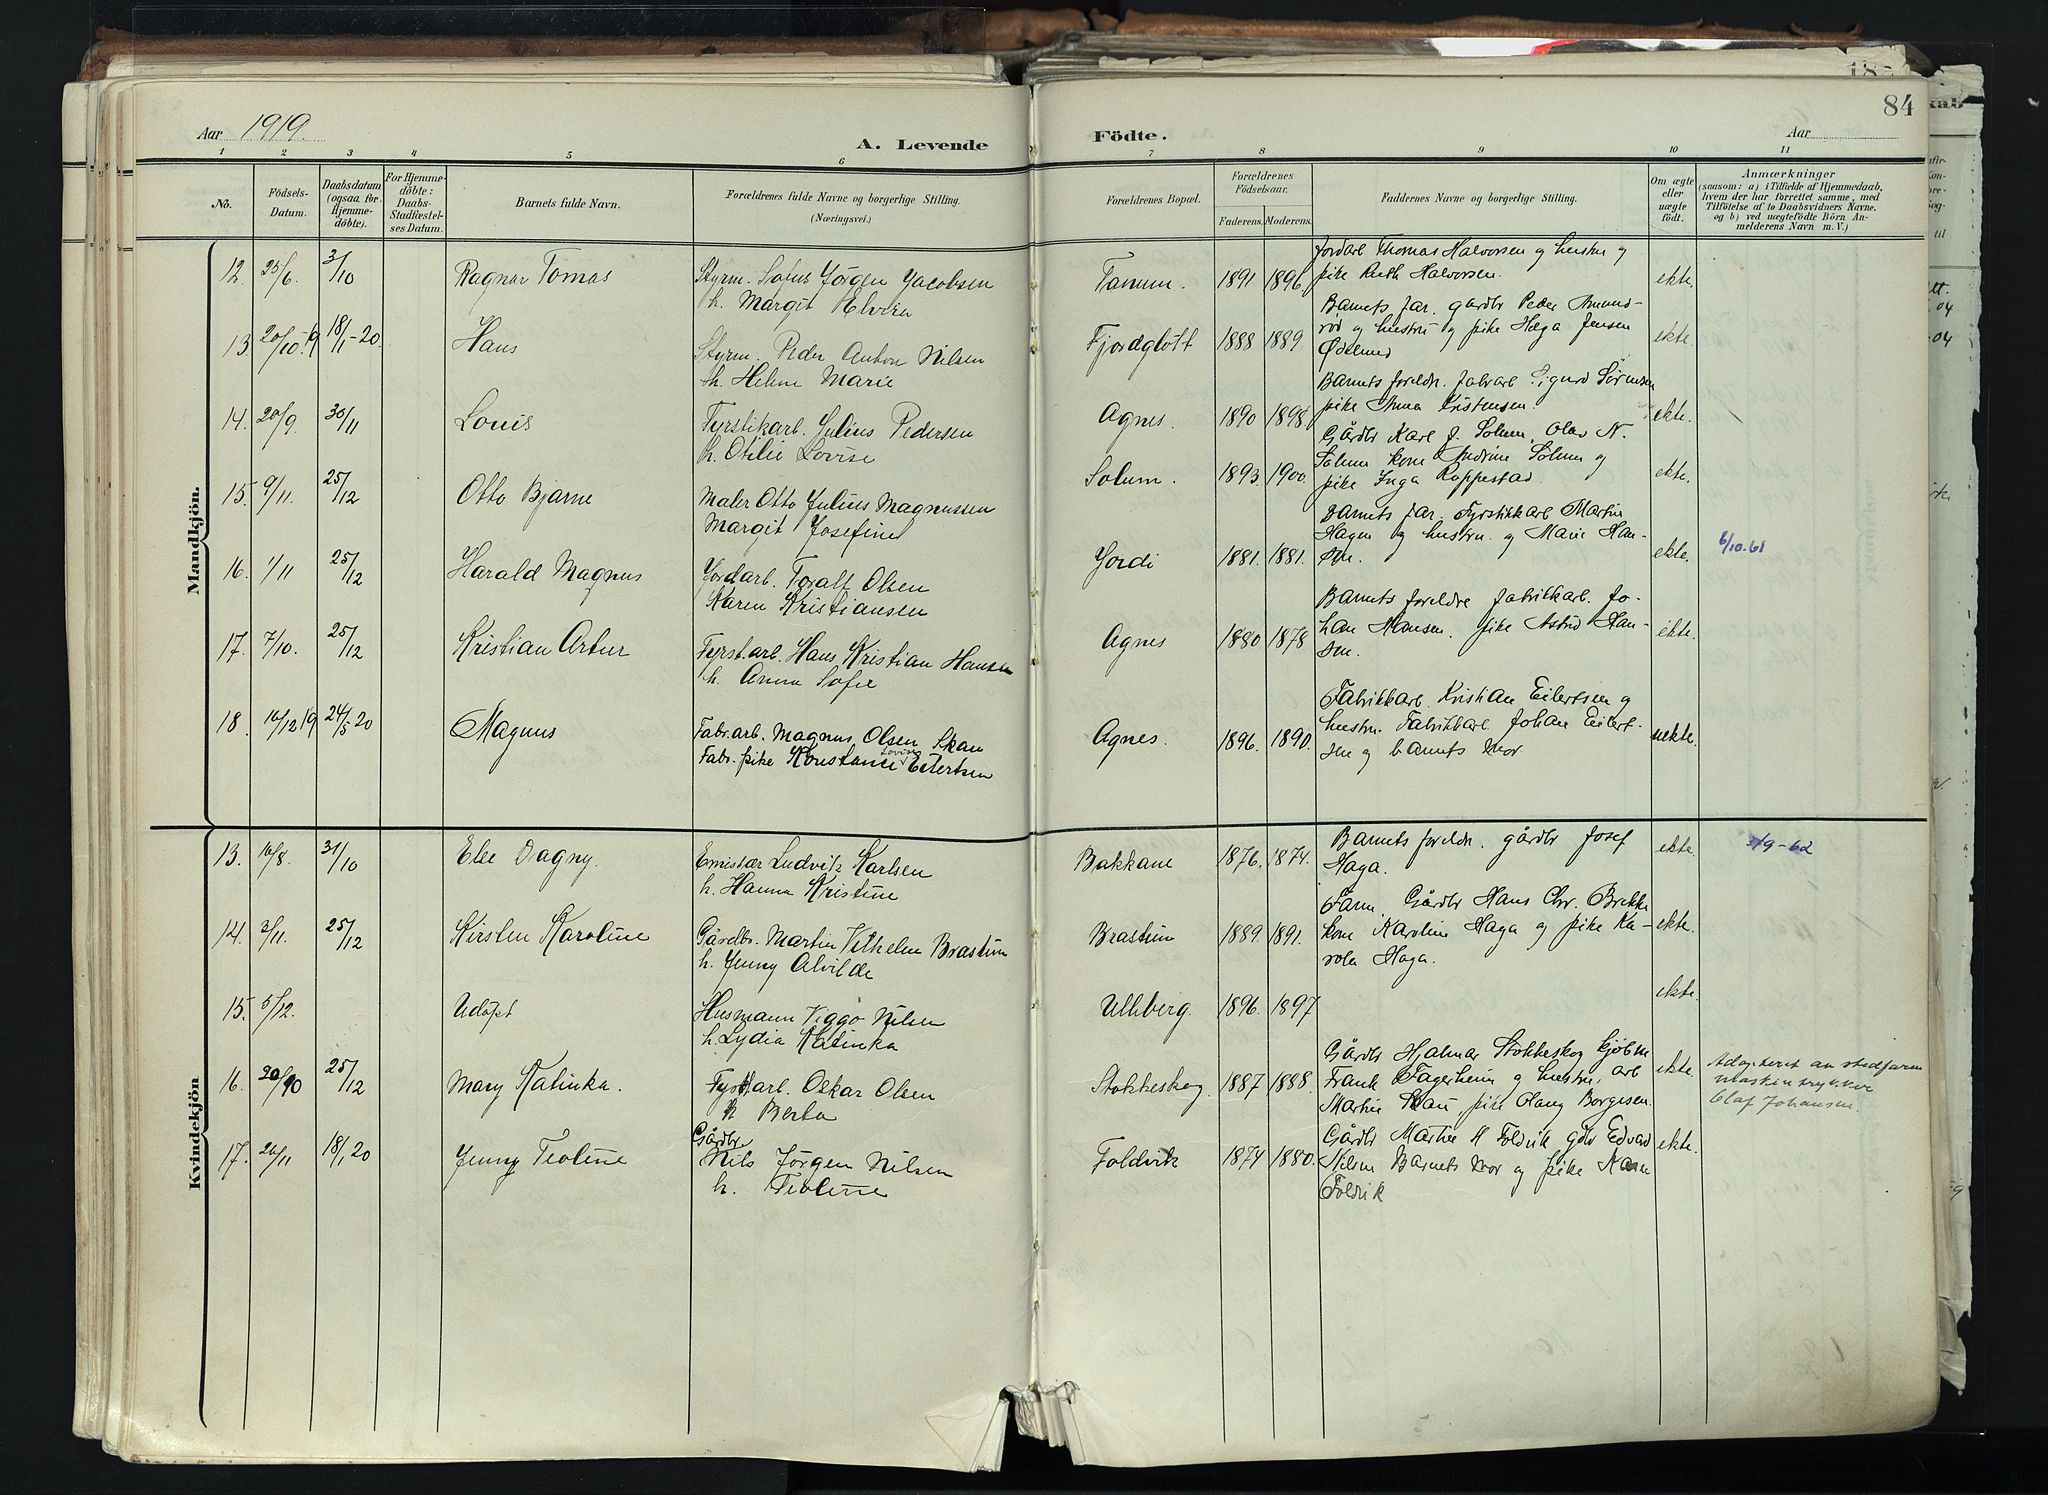 Aar 1919.
A. Levende
Födte.
Aar
84
1 2 3 4 5 6 7 8 9 10 11
No.
Födsels-Datum.
Daabsdatum (ogsaa for Hjemme-döbte).
For Hjemme-döbte: Daabs-Stadfæstel-ses Datum.
Barnets fulde Navn.
Forældrenes fulde Navne og borgerlige Stilling.
(Næringsvei.)
Forældrenes Bopæl.
Forældrenes Födselsaar.
Faderens. Moderens.
Faddernes Navne og borgerlige Stilling.
Om ægte eller uægte födt.
Anmærkninger
(saasom: a) i Tilfælde af Hjemmedaab,
hvem der har forrettet samme, med
Tilföielse af to Daabsvidners Navne.
og b) ved uægtefödte Börn An-
melderens Navn m. V.)
Mandkjön.
12. 25/6. 3/10 Ragnar Tomas Styrm. Sofus Jörgen Jacobsen
h. Margit Elvira
Tanum. 1891 1896 Jordarb Thomas Halvorsen og hustru og
pike Ruth Halvorsen.
ekte.
13. 20/10-19 18/1-20. Hans Styrm. Peder Anton Nilsen
h. Helene Marie
Fjordglött 1888 1889 Barnets far. gårdbr Peder Amund-
röd og hustru og pike Helga Jensen
Ödelund
ekte.
14. 20/9. 30/11 Louis Fyrstikarb. Julius Pedersen
h. Otilie Lovise
Agnes. 1890 1898. Barnets foreldr. fabrarb Sigurd Sörensen
pike Anna Kristensen.
ekte.
15. 9/11. 25/12 Otto Bjarne Maler Otto Julius Magnussen
Margit Josefine
Solum. 1893. 1900. Gårdbr Karl J. Solum, Olav N.
Solum kone Andrine Solum og
pike Inga Roppestad.
ekte.
16. 1/11 25/12 Harald Magnus Jordarb. Toralf Olsen
Karen Kristiansen
Jordi 1881. 1881. Barnets far. Fyrstikkarb Martin
Hagen og hustru. og Marie Han-
sen.
ekte. 6/10.61
17. 7/10. 25/12 Kristian Artur Fyrst.arb. Hans Kristian Hansen
h. Anna Sofie
Agnes 1880 1878 Barnets foreldre fabrikkarb. Jo-
han Hansen. pike Astrid Han-
sen.
ekte.
18. 16/12 19 24/5 20 Magnus Fabr.arb. Magnus Olsen Skau
Fabr. pike Konstance Lovise Eilertsen
Agnes. 1896. 1890. Fabrikkarb. Kristian Eilertsen og
hustru. Fabrikkarb. Johan Eilert-
sen og barnets mor
uekte.
Kvindekjön
13. 16/8. 31/10 Else Dagny. Emissær Ludvik Karlsen
h. Hanna Kristine
Bakkane 1876. 1874. Barnets foreldr. gårdbr Josef
Haga.
ekte 3/9-62
14. 3/11. 25/12 Kirsten Karoline Gårdbr. Martin Vilhelm Brastein
h. Jenny Alvilde
Brastein 1889. 1891. Farm. Gårdbr Hans Chr. Brekke
kone Karoline Haga og pike Ka-
rola Haga.
ekte.
15. 5/12. Udöpt Husmann Viggo Nilsen
h. Lydia Katinka
Ulleberg. 1896. 1897
ekte.
16. 20/10 25/12 Mary Katinka. Fyrst.arb. Oskar Olsen
h Berta
Stokkeskog 1887 1888. Gårdbr Hjalmar Stokkeskog kjöbm
Frank Fagerheim og hustru, arb
Martin Skau, pike Olaug Borgesen.
ekte. Adopteret av stedfaren
maskintrykker
Olaf Johansen.
17. 26/11 18/1 20 Jenny Teoline Gårdbr
Nils Jörgen Nilsen
h. Teoline
Foldvik 1874 1880. Gårdbr Martin H Foldvik gdbr Edvard
Nilsen Barnets mor og pike Karen
Foldvik
ekte.